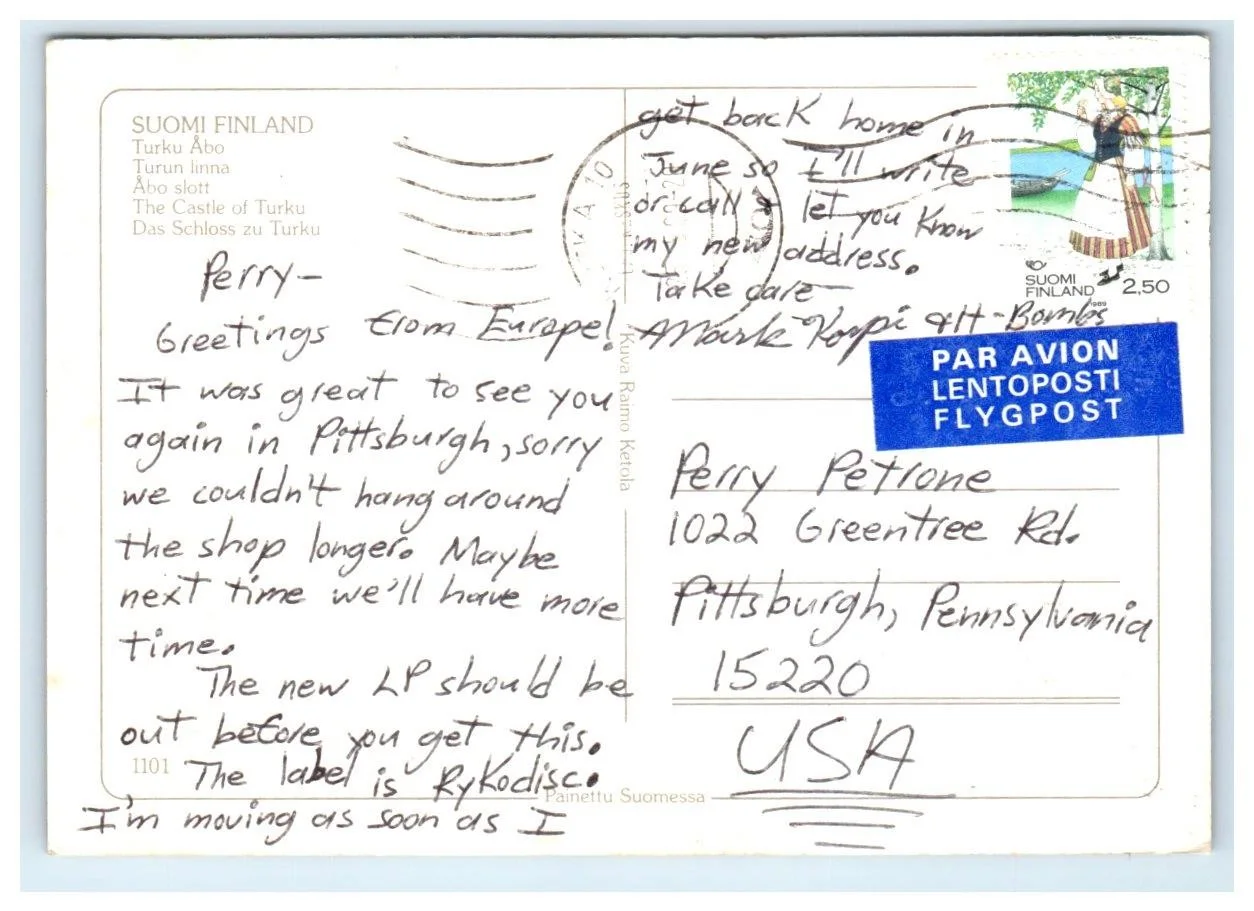 SUOMI FINLAND
Turku Åbo
Turun linna
Åbo slott
The Castle of Turku
Das Schloss zu Turku
Perry—
Greetings from Europe!
It was great to see you
again in Pittsburgh, sorry
we couldn't hang around
the shop longer. Maybe
next time we'll have more
time.
The new LP should be
out before you get this.
The label is Rykodisc.
I'm moving as soon as I
get back home in
June so I'll write
or call & let you know
my new address.
Take care—
Mark Korpi & H-Bombs
1101
Kuva Raimo Ketola
Painettu Suomessa
SUOMI
FINLAND 2,50
1989
PAR AVION
LENTOPOSTI
FLYGPOST
Perry Petrone
1022 Greentree Rd.
Pittsburgh, Pennsylvania
15220
USA